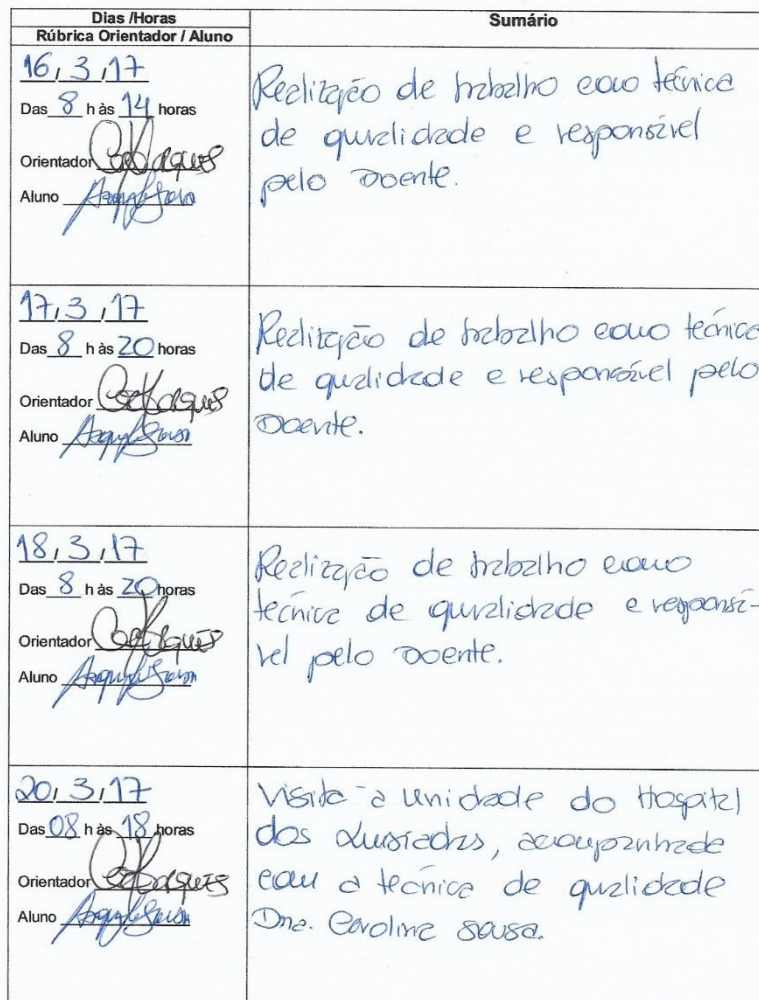 Dias /Horas
Rúbrica Orientador / Aluno
Sumário
16, 3, 17
Das 8 h às 14 horas
Orientador
Aluno
Realização de trabalho como técnica
de qualidade e responsável
pelo Doente.
17, 3, 17
Das 8 h às 20 horas
Orientador
Aluno
Realização de trabalho como técnica
de qualidade e responsável pelo
Doente.
18, 3, 17
Das 8 h às 20 horas
Orientador
Aluno
Realização de trabalho como
técnica de qualidade e responsá-
vel pelo Doente.
20, 3, 17
Das 08 h às 18 horas
Orientador
Aluno
Visita à unidade do Hospital
dos Lusíadas, acompanhada
com a técnica de qualidade
Dra. Caroline Sousa.